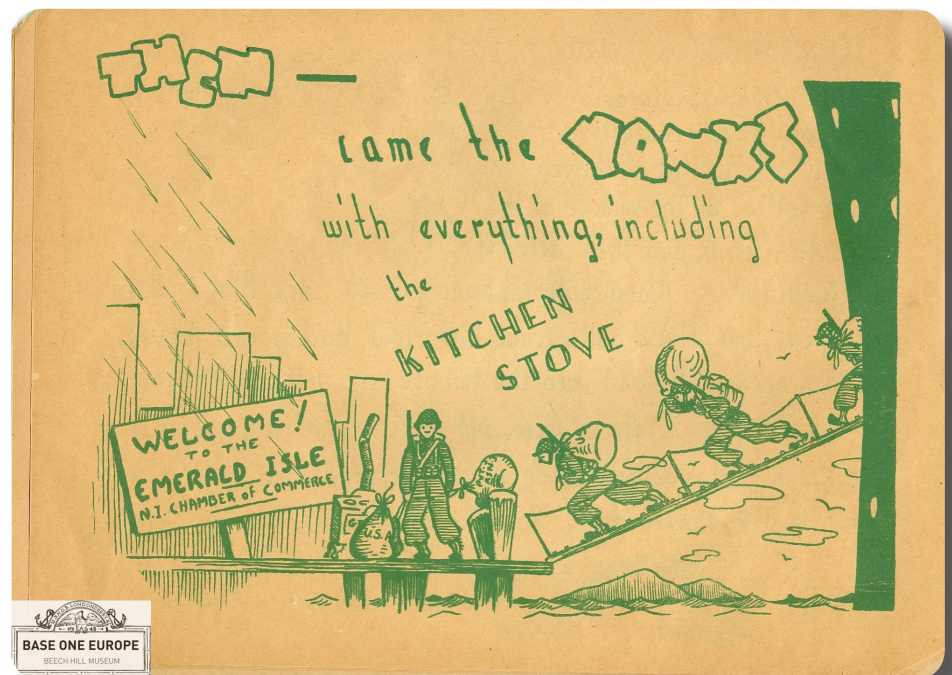 THEN —
came the YANKS
with everything, including
the
KITCHEN
STOVE
WELCOME!
TO THE
EMERALD ISLE
N.I. CHAMBER of COMMERCE
U.S.A.
1941
BASE ONE EUROPE
BEECH HILL MUSEUM